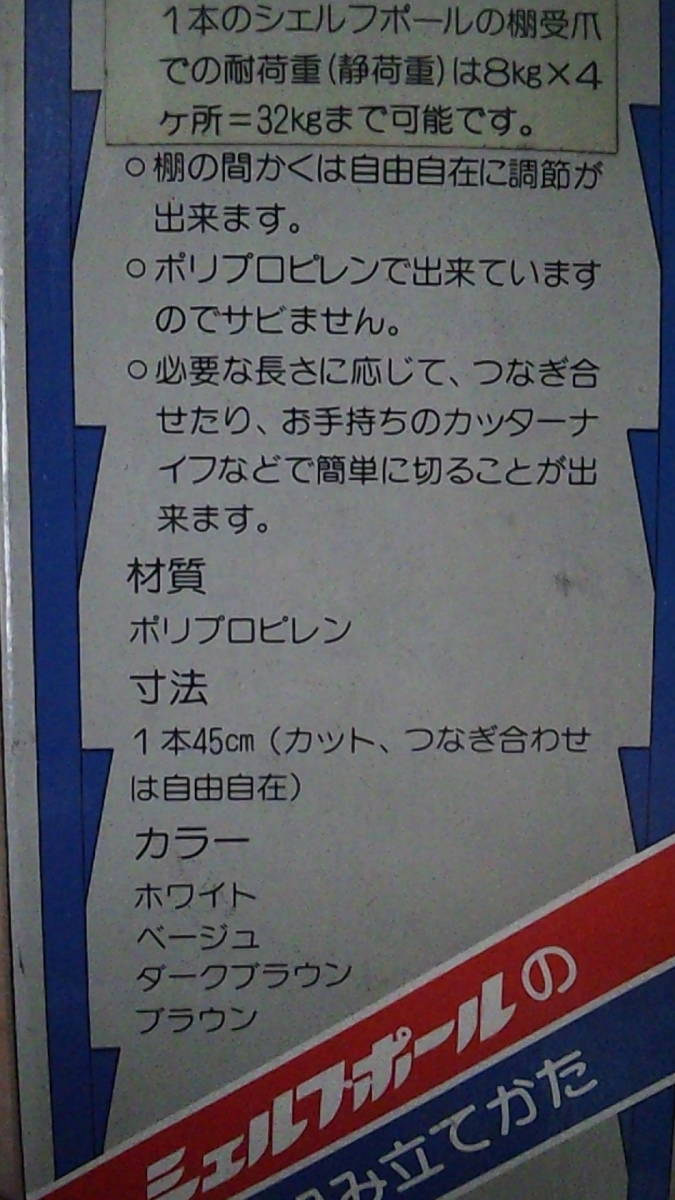 1本のシェルフポールの棚受爪
での耐荷重(静荷重)は8kg×4
ヶ所=32kgまで可能です。
○棚の間かくは自由自在に調節が
出来ます。
○ポリプロピレンで出来ています
のでサビません。
○必要な長さに応じて、つなぎ合
せたり、お手持ちのカッターナ
イフなどで簡単に切ることが出
来ます。
材質
ポリプロピレン
寸法
1本45cm(カット、つなぎ合わせ
は自由自在)
カラー
ホワイト
ベージュ
ダークブラウン
ブラウン
シェルフポールの
み立てかた